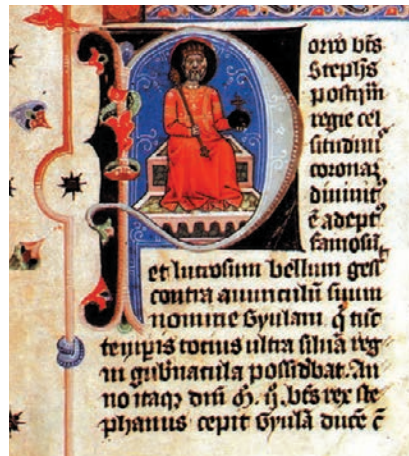 Porro bt̄s
Steph̄s
postq̄m
regie cel
situdinī
coronaȝ
diuinit᷒
ē adept᷒
famosū
et lucrosum bellum gess̄
contra auunculū suum
nomine Gyulam. q̄ tūc
temp̄is totius ultra siluā reg
ni gub̄nacula possidebat. An
no itaqȝ dnī M̄. ij̄. bt̄s rex ste
phanus cepit Gyulā ducē c̄